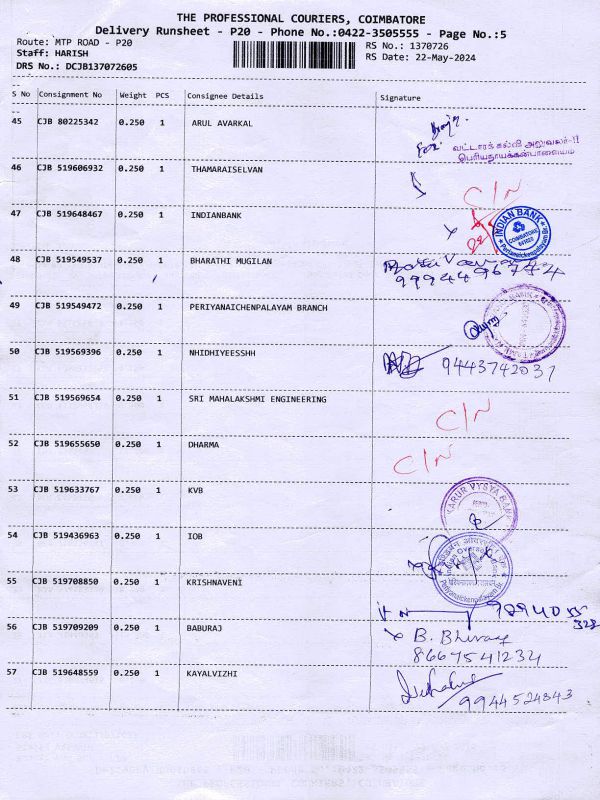 THE PROFESSIONAL COURIERS, COIMBATORE
Delivery Runsheet - P20 - Phone No.:0422-3505555 - Page No.:5
Route: MTP ROAD - P20
Staff: HARISH
DRS No.: DCJB137072605
RS No.: 1370726
RS Date: 22-May-2024
S No Consignment No Weight PCS Consignee Details Signature
45 CJB 80225342 0.250 1 ARUL AVARKAL
வட்டாரக் கல்வி அலுவலர்-II
பெரியநாயக்கன்பாளையம்
46 CJB 519606932 0.250 1 THAMARAISELVAN
C/N
47 CJB 519648467 0.250 1 INDIANBANK
INDIAN BANK
COIMBATORE
48 CJB 519549537 0.250 1 BHARATHI MUGILAN
49 CJB 519549472 0.250 1 PERIYANAICHENPALAYAM BRANCH
50 CJB 519569396 0.250 1 NHIDHIYEESSHH
9443742031
51 CJB 519569654 0.250 1 SRI MAHALAKSHMI ENGINEERING
C/N
52 CJB 519655650 0.250 1 DHARMA
C/N
53 CJB 519633767 0.250 1 KVB
KARUR VYSYA BANK
54 CJB 519436963 0.250 1 IOB
55 CJB 519708850 0.250 1 KRISHNAVENI
9894055
328
56 CJB 519709209 0.250 1 BABURAJ
8667541234
57 CJB 519648559 0.250 1 KAYALVIZHI
9944524843